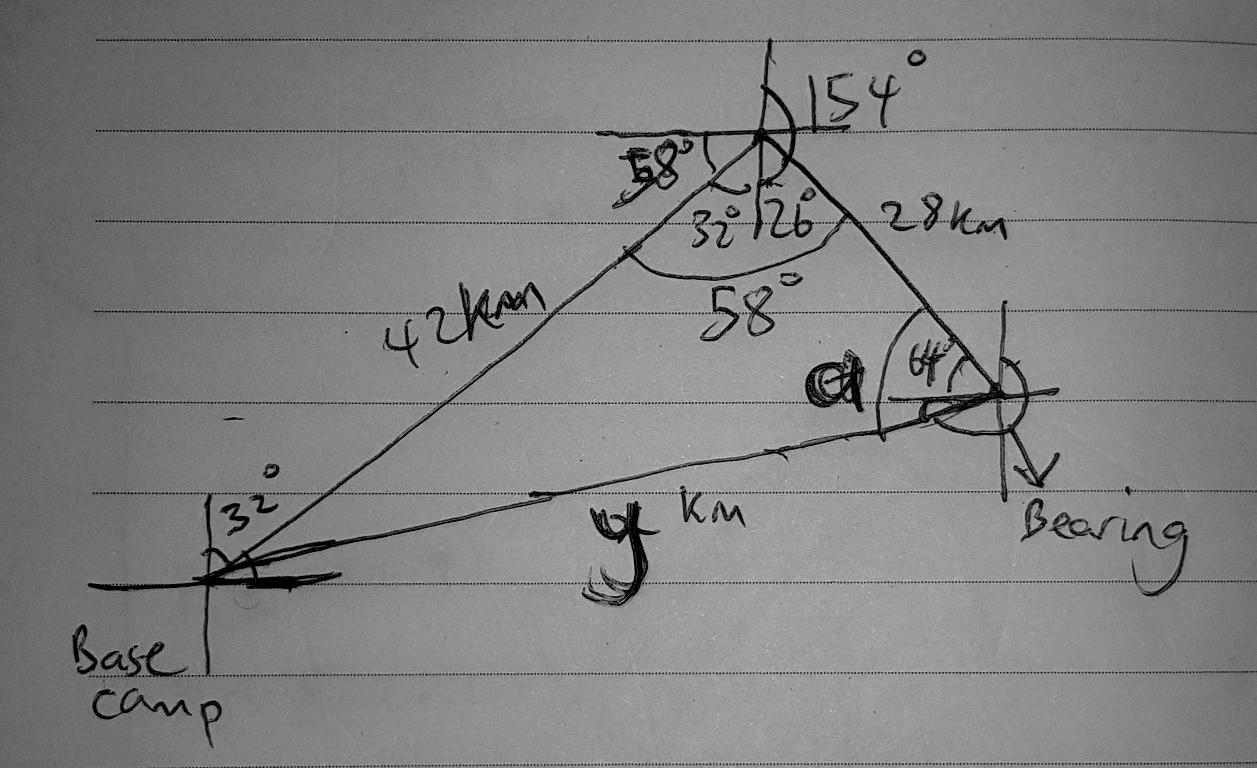 154°
58°
32° 26°
28 km
58°
42 km
64°
32°
y km
Bearing
Base
camp